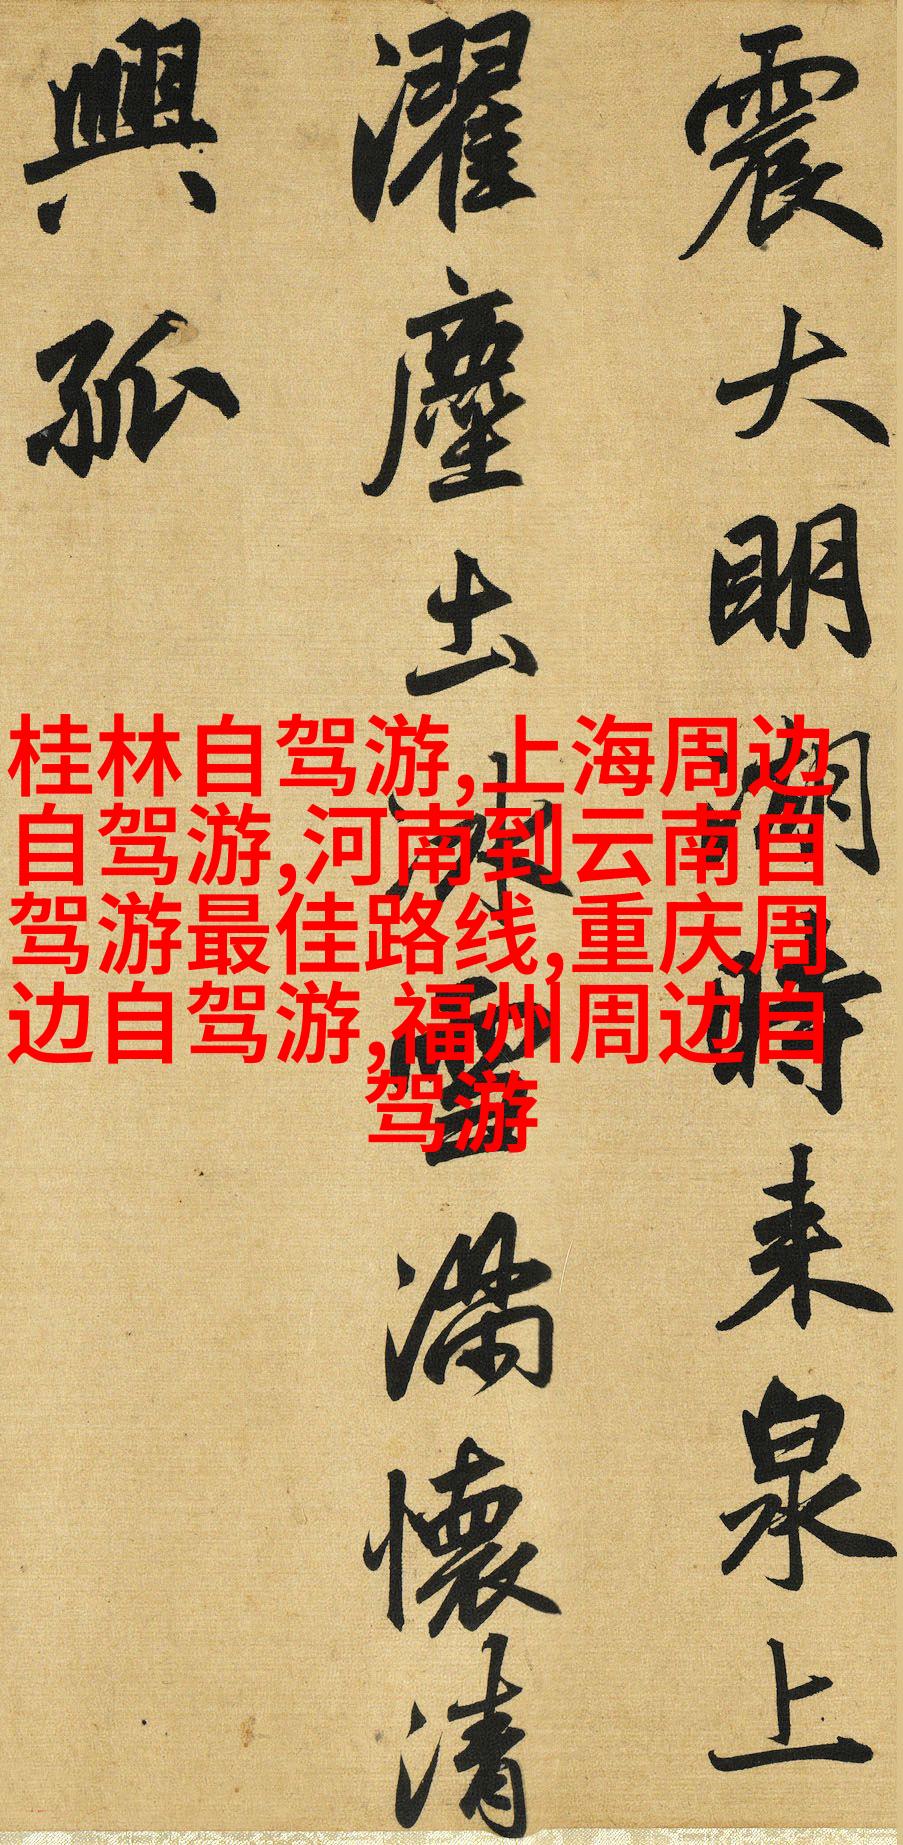 震大明湖時来泉上
濯塵土冰雪滿懷清
興孤
桂林自驾游,上海周边
自驾游,河南到云南自
驾游最佳路线,重庆周
边自驾游,福州周边自
驾游